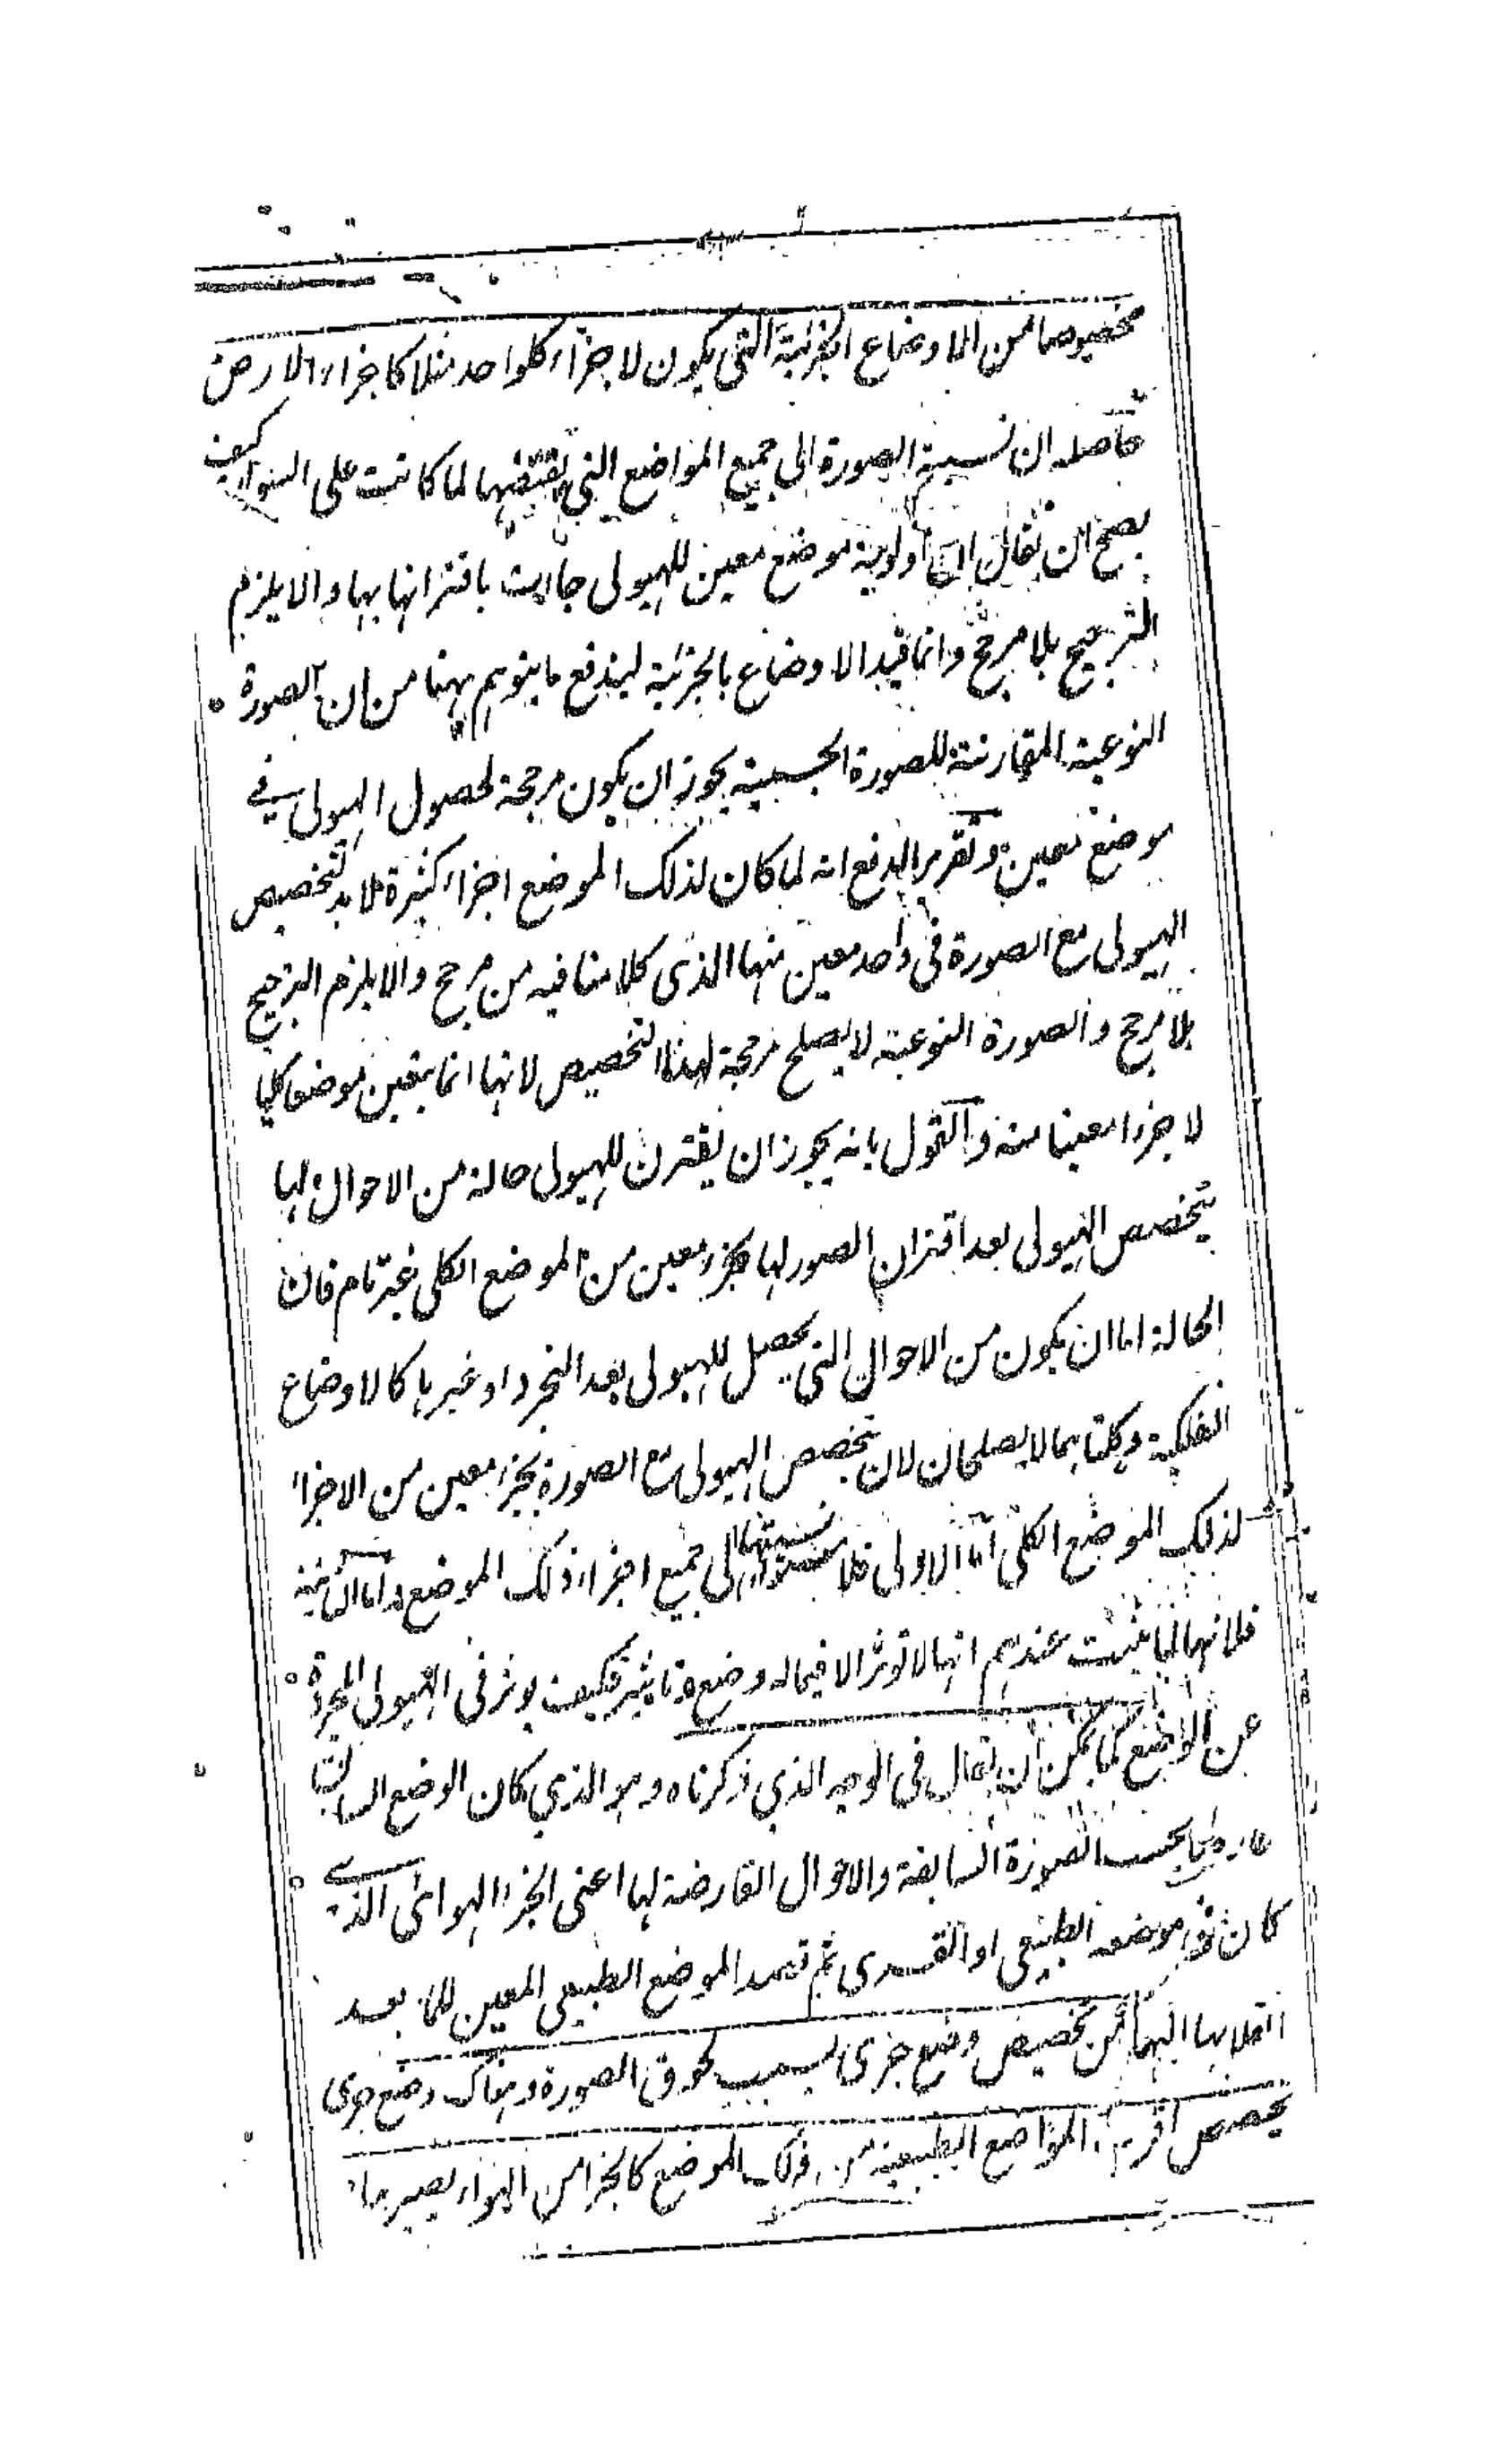 مخصوصا من الاوضاع الجزئية التي يكون لاجزاء كلواحد مثلا كاجزاء الارض
حاصله ان نسبة الصورة الى جميع المواضع التي يقتضيها لما كانت على السواء كيف
يصح ان يقال ان اولوية موضع معين للهيولى جاءت باقترانها بها والا يلزم
الترجيح بلا مرجح وانما قيد الاوضاع بالجزئية ليندفع ما يتوهم ههنا من ان الصورة
النوعية المقارنة للصورة الجسمية يجوز ان يكون مرجحة لحصول الهيولى في
موضع معين وتقرير الدفع انه لما كان لذلك الموضع اجزاء كثيرة فلا بد لتخصيص
الهيولى مع الصورة في واحد معين منها الذى كلامنا فيه من مرجح والا يلزم الترجيح
بلا مرجح والصورة النوعية لا يصلح مرجحة لهذا التخصيص لانها انما يتعين موضعا كليا
لا جزءا معينا منه والقول بانه يجوز ان يقترن للهيولى حالة من الاحوال بها
يتخصص الهيولى بعد اقتران الصور لها بجزء معين من الموضع الكلى غير تام فان
الحالة اما ان يكون من الاحوال التي يحصل للهيولى بعد التجرد او غيرها كالاوضاع
الفلكية وكلتاهما لا يصلحان لان يتخصص الهيولى مع الصورة بجزء معين من الاجزاء
لذلك الموضع الكلى اما الاولى فلا نسبتها الى جميع اجزاء ذلك الموضع واما الثانية
فلانها لما ثبت عندهم انها لا تؤثر الا فيما له وضع وتاثير فكيف يوثر في الهيولى المجردة
عن الوضع كما يمكن ان يقال في الوجه الذي ذكرناه وهو الذي كان الوضع السابق
بحسب الصورة السابقة والاحوال العارضة لها اعنى الجزء الهوائى الذي
كان في موضعه الطبيعي او القسرى ثم قصد الموضع الطبيعي المعين للماء بعد
انقلابها اليها من تخصيص وضع جزى بسبب لحوق الصورة وهناك وضع جزى
يخصص اقرب المواضع الطبيعية من ذلك الموضع كالجزء من الهواء يصير ماء